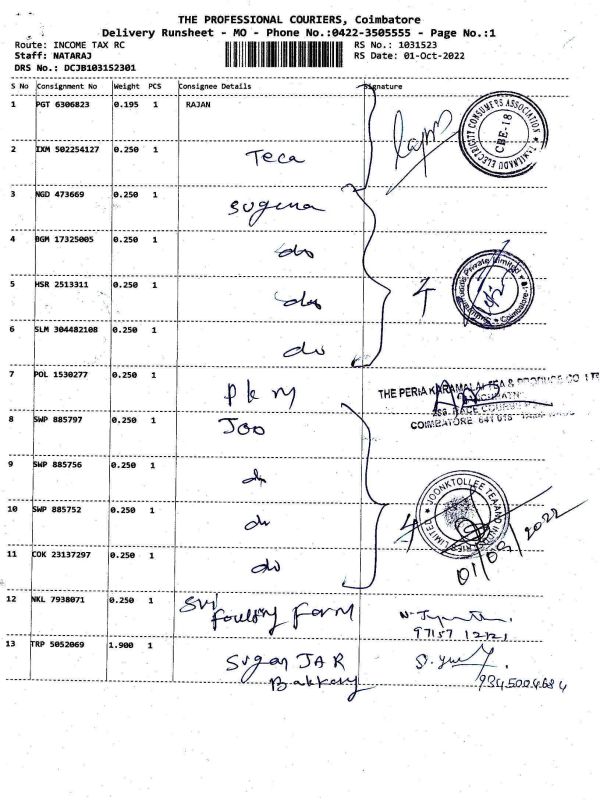 THE PROFESSIONAL COURIERS, Coimbatore
Delivery Runsheet - MO - Phone No.:0422-3505555 - Page No.:1
Route: INCOME TAX RC
RS No.: 1031523
Staff: NATARAJ
RS Date: 01-Oct-2022
DRS No.: DCJB103152301
S No Consignment No Weight PCS Consignee Details Signature
1 PGT 6306823 0.195 1 RAJAN
ELECTRICITY CONSUMERS ASSOCIATION
CBE-18
2 IXM 502254127 0.250 1 Teca
3 NGD 473669 0.250 1 Suguna
4 BGM 17325005 0.250 1 do
5 HSR 2513311 0.250 1 do
4
Private Limited
Coimbatore
6 SLM 304482108 0.250 1 do
7 POL 1530277 0.250 1 PKM
THE PERIA KARAMALAI TEA & PRODUCE CO LTD
RACE COURSE
COIMBATORE 641 018
8 SWP 885797 0.250 1 Joo
9 SWP 885756 0.250 1 do
10 SWP 885752 0.250 1 do
4
JOONKTOLLEE TEA AND LIMITED
01/09/2022
11 COK 23137297 0.250 1 do
12 NKL 7938071 0.250 1 Sri
Poultry Farm
97157 12121
13 TRP 5052069 1.900 1 Sugan JAR
Bakkery
9345004684